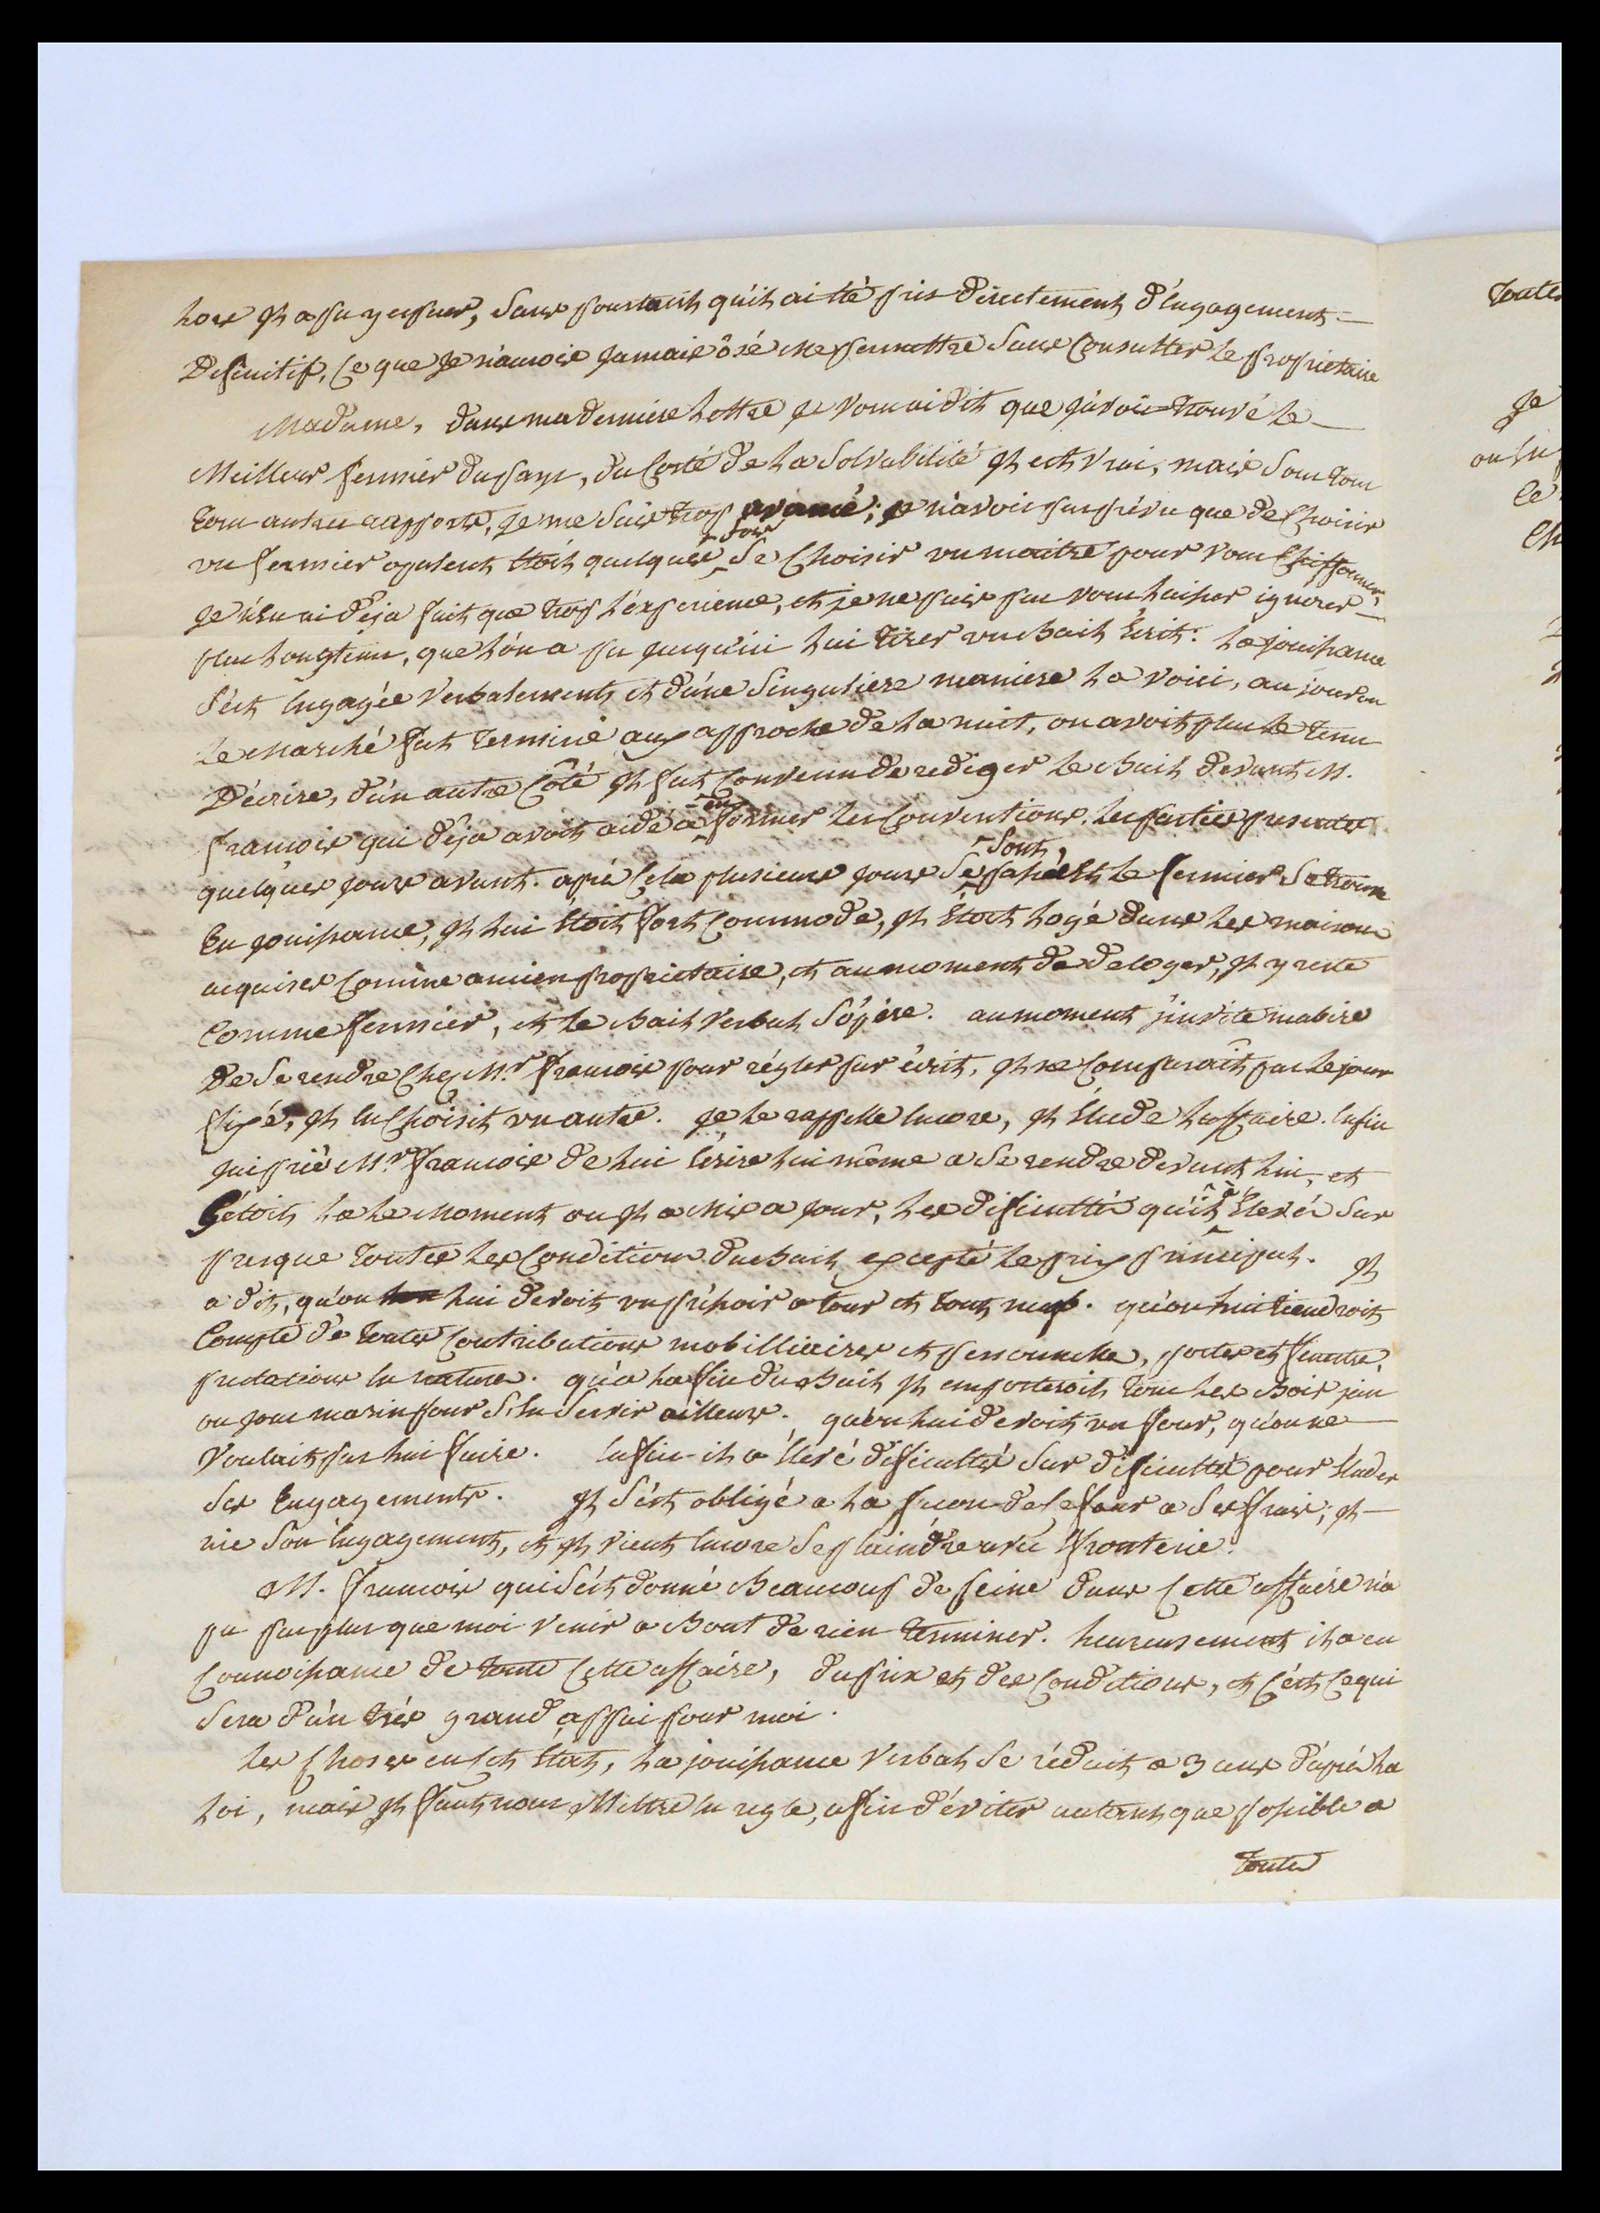 lors Il a pu y penser, Sans pourtant qu'il ait été pris directement d'Engagement
Definitif, Ce que Je n'aurois Jamais ôsé me permettre Sans Consulter Le proprietaire
Madame, dans ma derniere Lettre Je vous ai dit que j'avois trouvé Le
Meilleur fermier du pays, du Costé de La Solvabilité Il est vrai, mais Sous tous
tous autres rapports, Je me Suis trop avancé; Je n'avois pas prévu que de Choisir
un fermier opulent Etoit quelques fois Se Choisir un maitre pour vous Chiffonner,
Je n'En ai déja fait que trop L'experience, et je ne puis pas vous Laisser ignorer
plus Longtems, que L'on a pu jusqu'ici Lui tirer un Bail Ecrit. La jouissance
S'est Engagée Verbalement et d'une Singuliere maniere La voici, au jour ou
Le Marché fut terminé aux approche de La nuit, on avoit plus Le tems
D'écrire, d'un autre Côté Il fut Convenu de rediger Le Bail devant M.
francois qui déja avoit aidé a en former Les Conventions, Les parties presentes
quelques jours avant. après Cela plusieurs jours Se Sont passés Et Le fermier Se trouve
En jouissance, Il Lui Etoit fort Commode, Il Etoit Logé dans Les maisons
acquises Comme ancien proprietaire, et au moment de deloger, Il y reste
Comme fermier, et Le Bail verbal S'opére. au moment j'invite mabire
De Se rendre Chez M.r francois pour régler par écrit, Il ne Comparaît pas Le jour
fixé, Il En Choisit un autre. Je Le rappelle Encore, Il Elude L'affaire. Enfin
J'ai prié M.r francois de Lui Ecrire Lui même a Se rendre devant Lui, et
C'étoit La Le Moment ou Il a Mis a jour, Les dificultés qu'il a Elevés Sur
presque toutes Les Conditions du Bail excepté Le prix principal. Il
a dit, qu'on Lui devoit un préssoir a tour et tout neuf. qu'on Lui tiendroit
Compte de toutes Contributions mobilliaires et personnelles, portes et fenetre,
prestations En nature. qu'a La fin du Bail Il emporteroit tous Les Bois jan
ou jonc marin pour S'En Servir ailleurs. qu'on Lui devoit un four, qu'on ne
Voulait pas Lui faire. Enfin il a Elevé dificultés Sur dificultés pour Eluder
Ses Engagements. Il S'est obligé a La facon de Ce four a Ses frais; Il
nie Son Engagement, et Il vient Encore Se plaindre avec Effronterie.
M. francois qui S'est donné Beaucoup de peine dans Cette affaire n'a
pu pas plus que moi venir a Bout de rien terminer. heureusement il a eu
Connoissance de toute Cette affaire, du prix et des Conditions, et C'est Ce qui
Sera d'un très grand appui pour moi.
Les Choses en Cet Etat, La jouissance Verbal Se réduit a 3 ans d'après La
Loi, mais Il faut nous Mettre En regle, afin d'éviter autant que possible a
toutes
toutes
Je
ou En
Ce